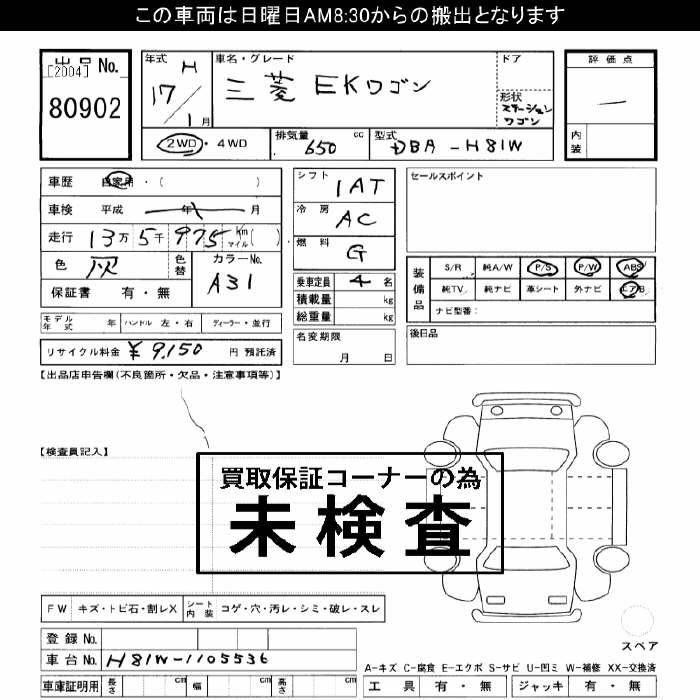 この車両は日曜日AM8:30からの搬出となります
出品 No.
[2004]
80902
年式 H 17/1月
車名・グレード 三菱 EKワゴン
ドア
形状 ステーションワゴン
2WD・4WD
排気量 650 cc
型式 DBA-H81W
評価点
内装
車歴 自家用・( )
車検 平成 年 月
走行 13万5千975 km マイル( )
色 灰
色替
カラーNo. A31
保証書 有・無
シフト 1AT
冷房 AC
燃料 G
乗車定員 4 名
積載量 kg
総重量 kg
名変期限 月 日
セールスポイント
装備品
S/R 純A/W P/S P/W ABS
純TV 純ナビ 革シート 外ナビ エアB
ナビ型番:
後日品
モデル年式 年 ハンドル 左・右 ディーラー・並行
リサイクル料金 ¥9,150 円 預託済
【出品店申告欄(不良箇所・欠品・注意事項等)】
【検査員記入】
買取保証コーナーの為
未検査
FW キズ・トビ石・割レX シート内装 コゲ・穴・汚レ・シミ・破レ・スレ
登録 No.
車台 No. H81W-1105536
車庫証明用 長さ cm 幅 cm 高さ cm
スペア
A-キズ C-腐食 E-エクボ S-サビ U-凹ミ W-補修 XX-交換済
工具 有・無 ジャッキ 有・無